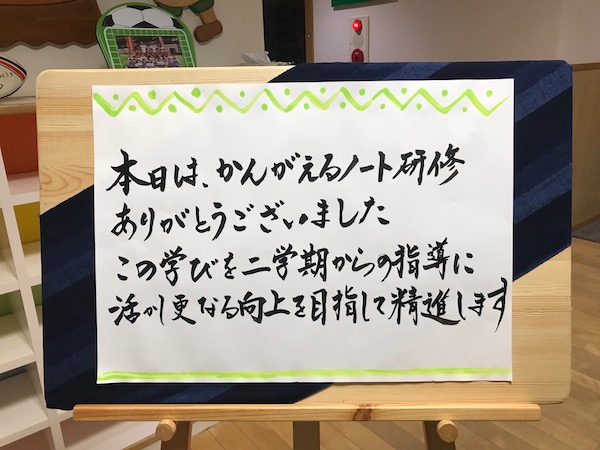 本日は、かんがえるノート研修
ありがとうございました
この学びを二学期からの指導に
活かし更なる向上を目指して精進します